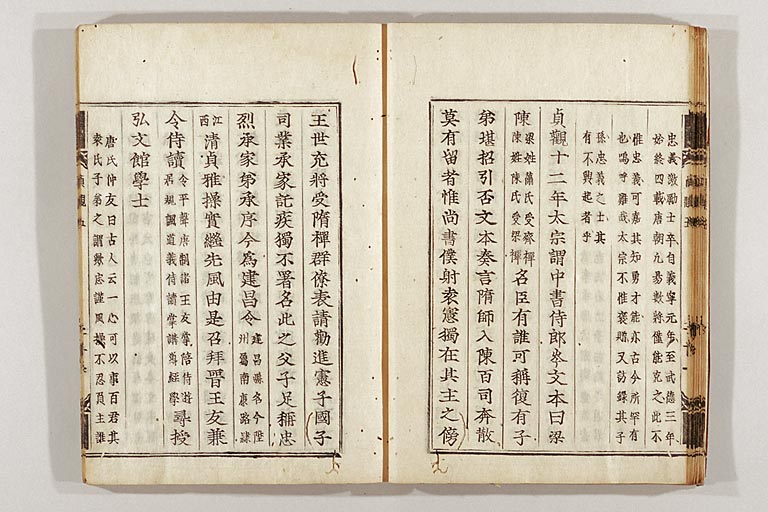 忠義激勵士卒自義寧元年至武德三年
始終四載唐朝凡易數將僅能克之此不
惟忠義可嘉其知勇才能亦古今所罕有
也嗚呼難哉太宗不惟褒贈又訪錄其子
孫忠義之士其
有不興起者乎
貞觀十二年太宗謂中書侍郎岑文本曰梁
陳梁姓蕭氏受齊禪陳姓陳氏受梁禪名臣有誰可稱復有子
弟堪招引否文本奏言隋師入陳百司奔散
莫有留者惟尚書僕射袁憲獨在其主之傍
王世充將受隋禪群僚表請勸進憲子國子
司業承家託疾獨不署名此之父子足稱忠
烈承家弟承序今為建昌令建昌縣名今陞州屬南康路隷
江西清貞雅操實繼先風由是召拜晉王友兼
令侍讀令平聲唐制諸王友掌陪侍游居規諷道義侍讀掌講導經學尋授
弘文館學士
唐氏仲友曰古人云一心可以事百君其
袁氏子弟之謂歟底謹風操不忍負主誰